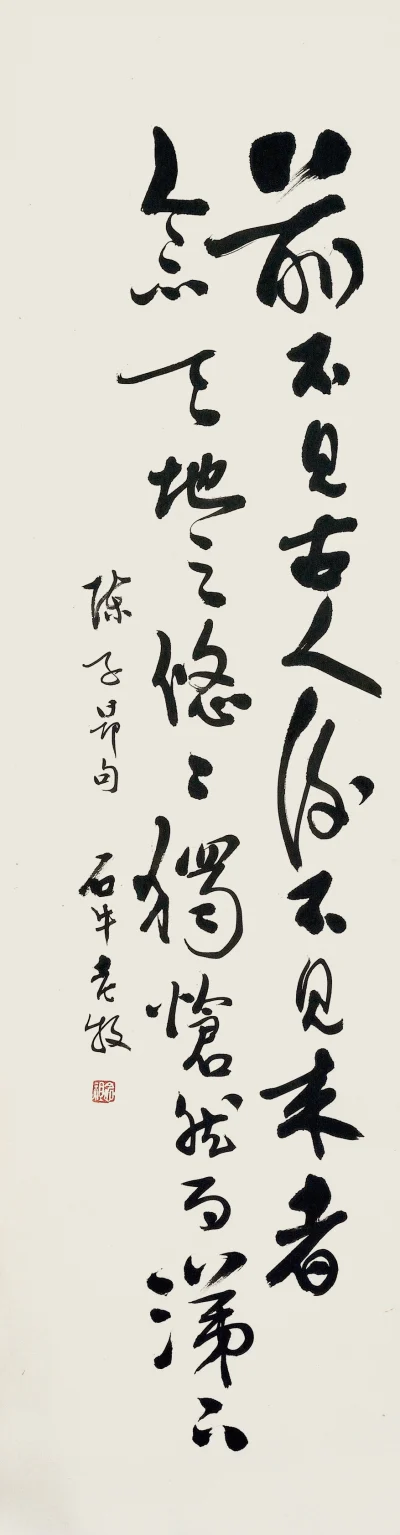 前不见古人后不见来者
念天地之悠々獨愴然而涕下
陈子昂句 石牛老牧